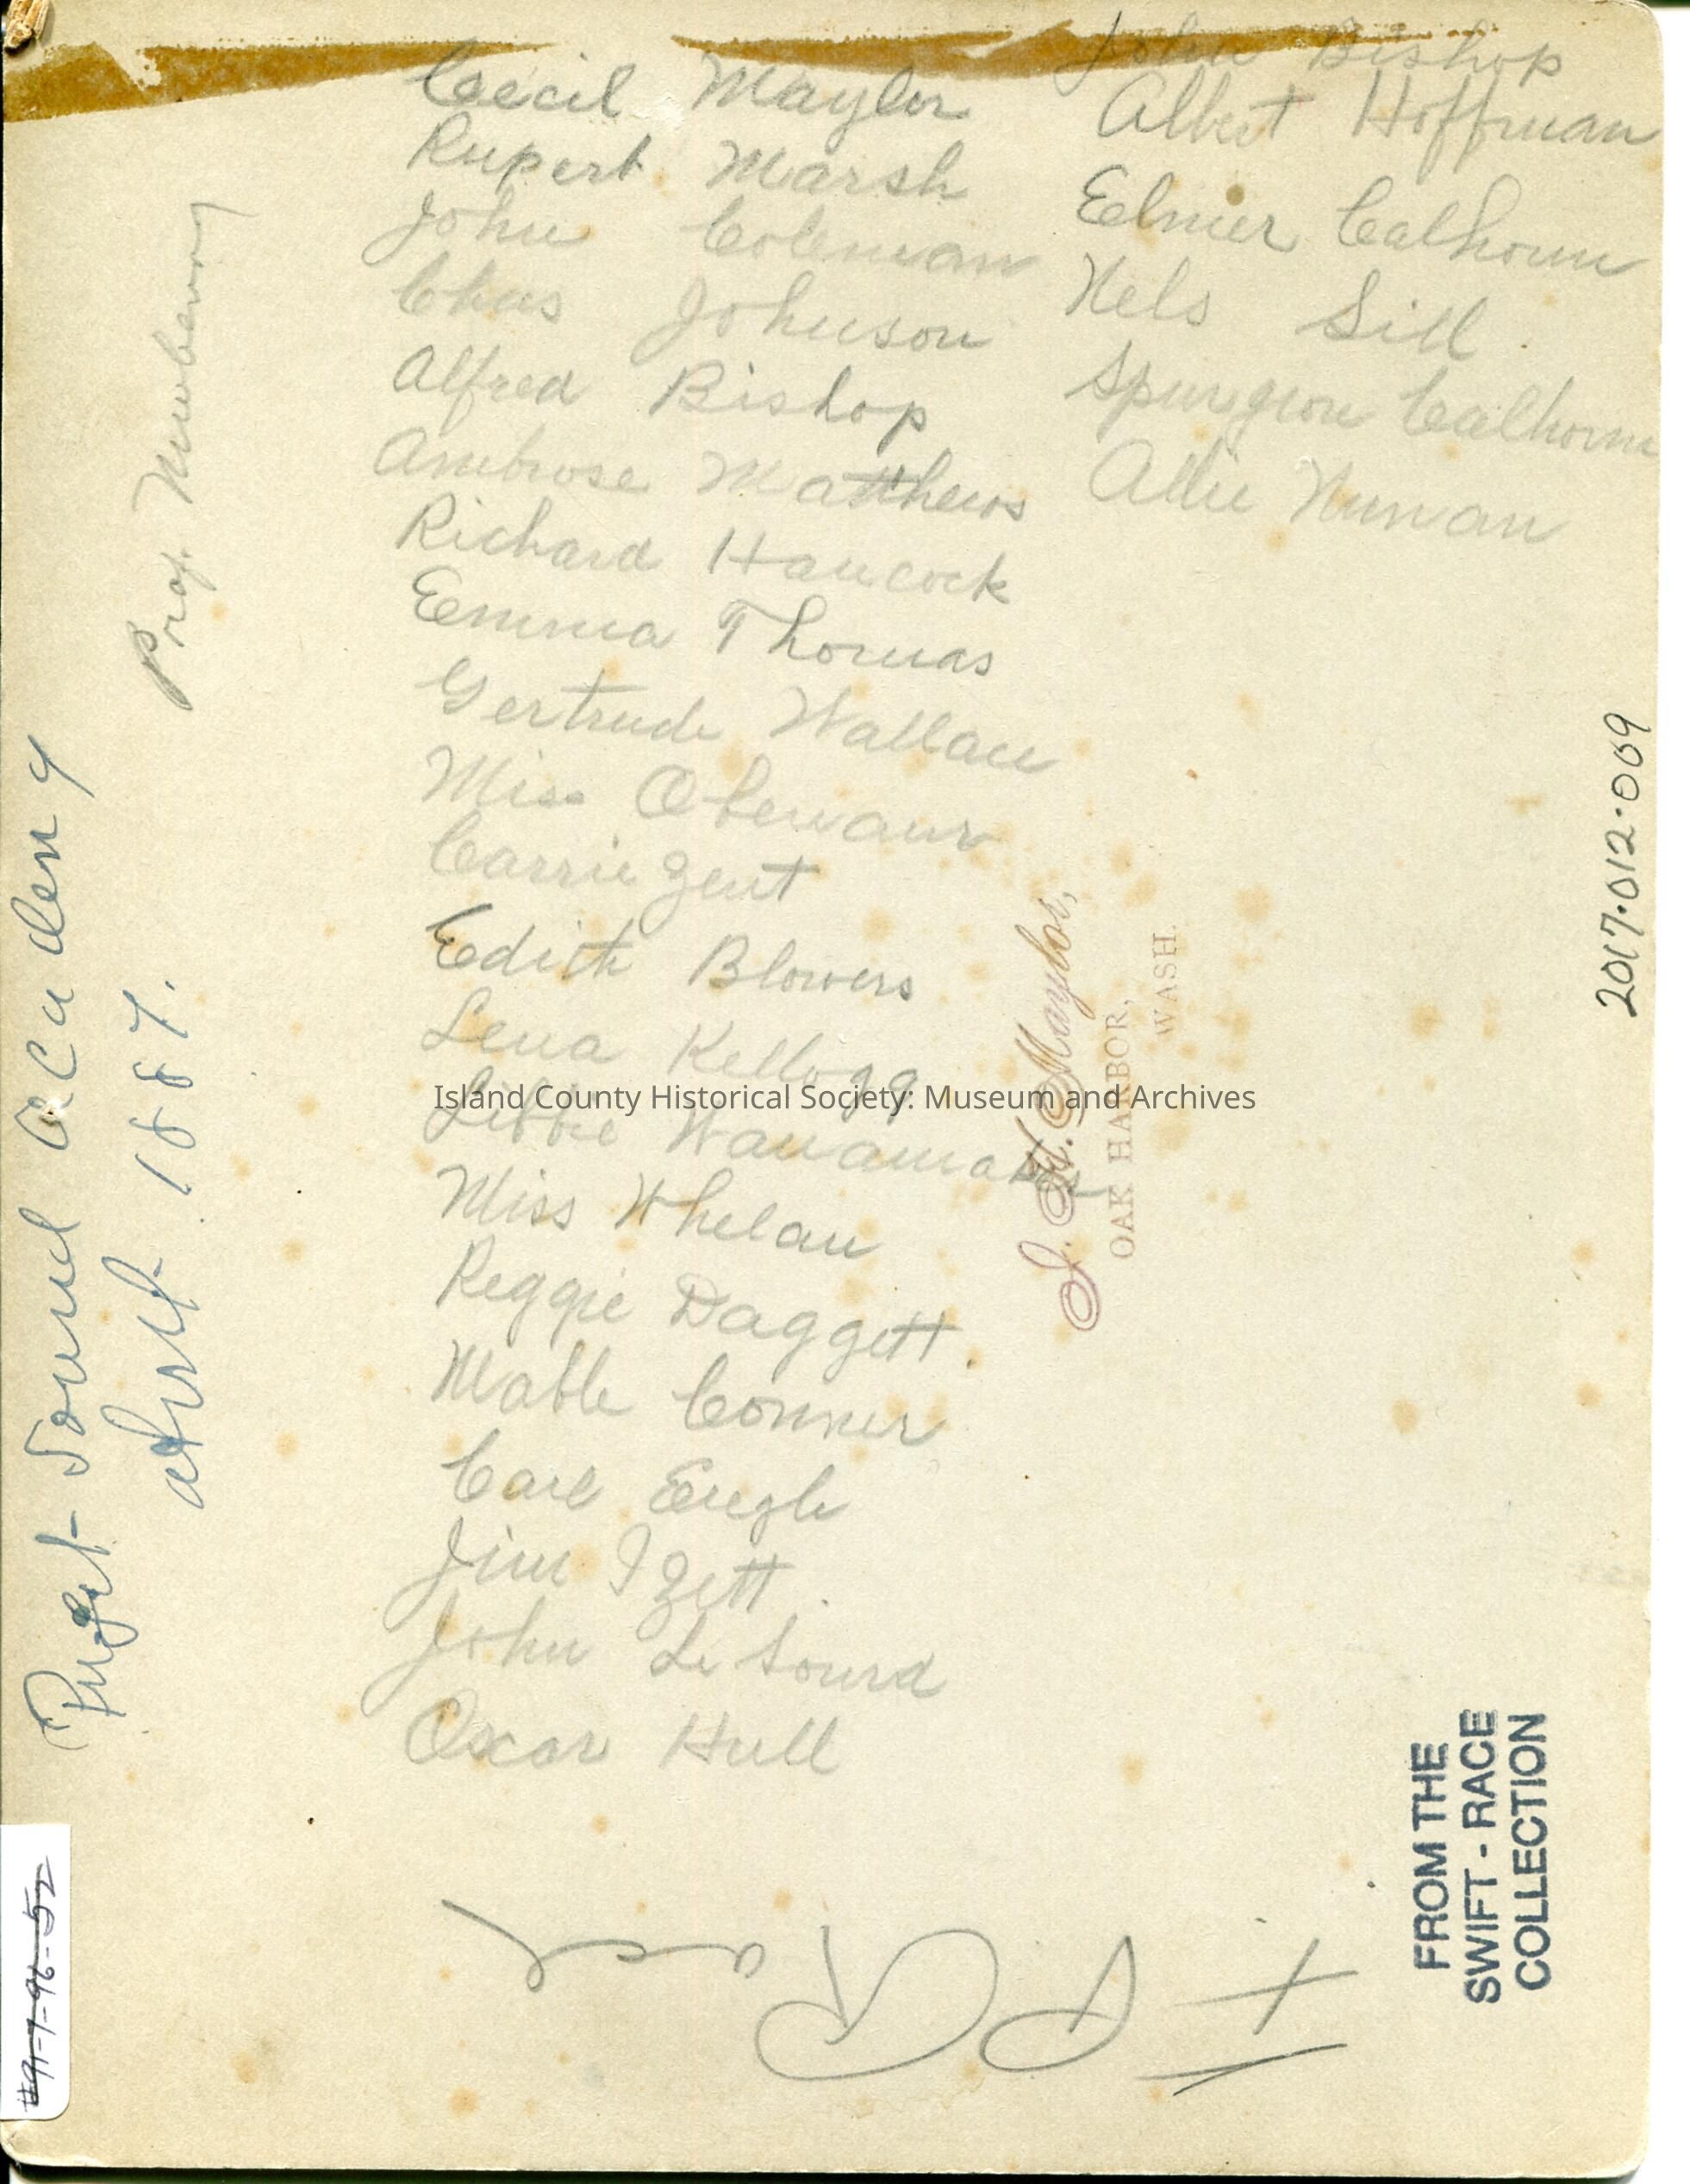 Cecil Maylor
Rupert Marsh
John Coleman
Chas Johnson
Alfred Bishop
Ambrose Matthews
Richard Hancock
Emma Thomas
Gertrude Wallace
Miss
Carrie Zent
Edith Blowers
Lena Kellogg
Libbie Wanamaker
Miss Whelan
Reggie Daggett.
Mable Conner
Carl Engle
Jim Izett.
John LeSourd
Oscar Hull
John Bishop
Albert Hoffman
Elmer Calhoun
Nels Sill
Spurgeon Calhoun
Allie Nunan
Prof. Newberry
Puget Sound Academy
about 1887.
J. H. Maylor,
OAK HARBOR,
WASH.
2017.012.009
FROM THE
SWIFT - RACE
COLLECTION
#91-7-96-52
Island County Historical Society: Museum and Archives